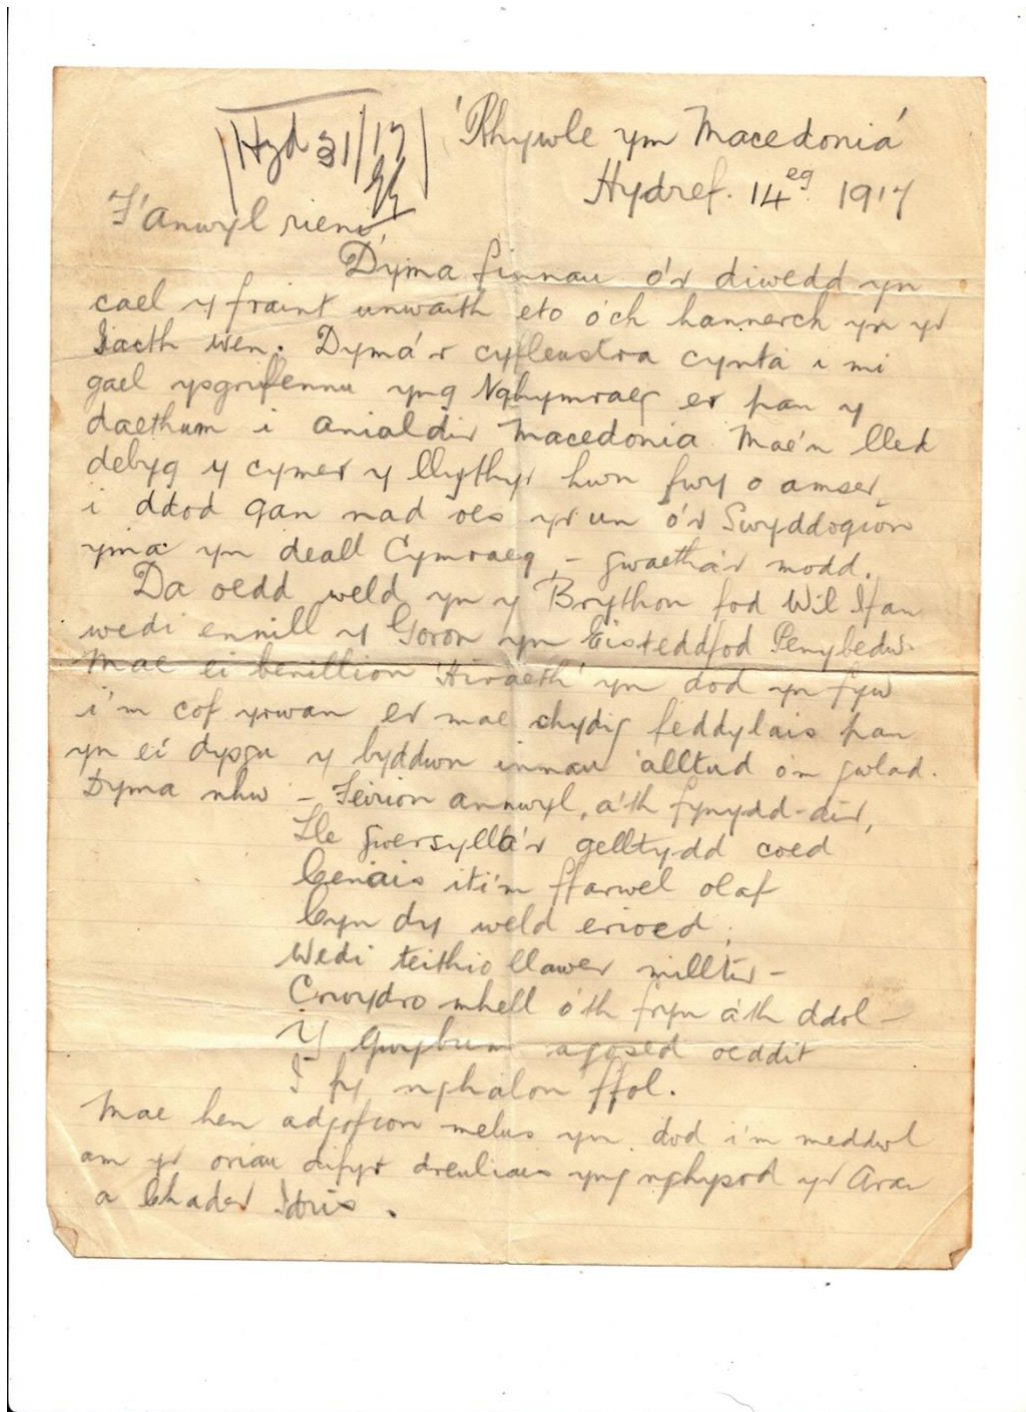 Hyd 31/17
'Rhywle ym Macedonia'
Hydref. 14eg 1917
F'anwyl rieni,
Dyma finnau o'r diwedd yn
cael y fraint unwaith eto o'ch hannerch yn yr
Iaeth wen. Dyma'r cyfleustra cynta i mi
gael ysgrifennu yng Nghymraeg er pan y
daethum i anialdir Macedonia Mae'n lled
debyg y cymer y llythyr hwn fwy o amser
i ddod gan nad oes yr un o'r Swyddogion
yma yn deall Cymraeg, - gwaetha'r modd.
Da oedd weld yn y Brython fod Wil Ifan
wedi ennill y Goron yn Eisteddfod Penybedw.
Mae ei benillion 'Hiraeth' yn dod yn fyw
i'm cof yrwan er mae chydig feddylais pan
yn ei dysgu y byddwn innau 'alltud o'm gwlad.
Dyma nhw - Feirion annwyl, a'th fynydd-dir,
Lle gwersylla'r gelltydd coed
Cenais iti'm ffarwel olaf
Cyn dy weld erioed;
Wedi teithio llawer milltir -
Crwydro mhell o'th fryn a'th ddol -
Y Gwybum agosed oeddit
I fy nghalon ffol.
Mae hen adgofion melus yn dod i'm meddwl
am yr oriau difyr dreuliais yng nghysod yr Aran
a Chader Idris.